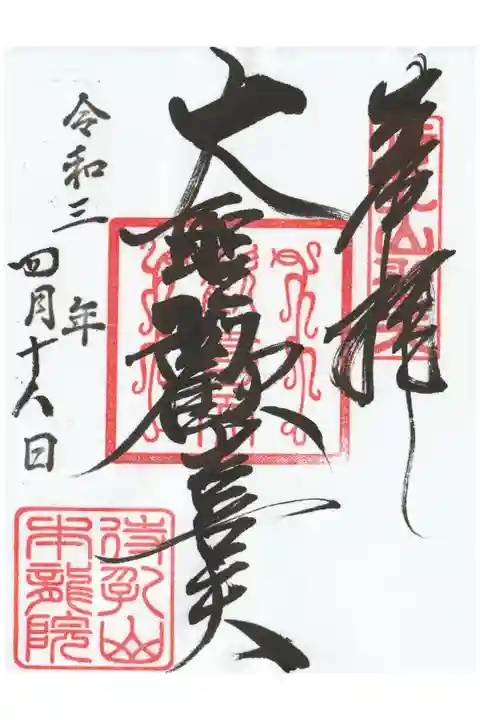 奉拝
大聖歓喜天
令和三年
四月十八日
待乳山
本龍院